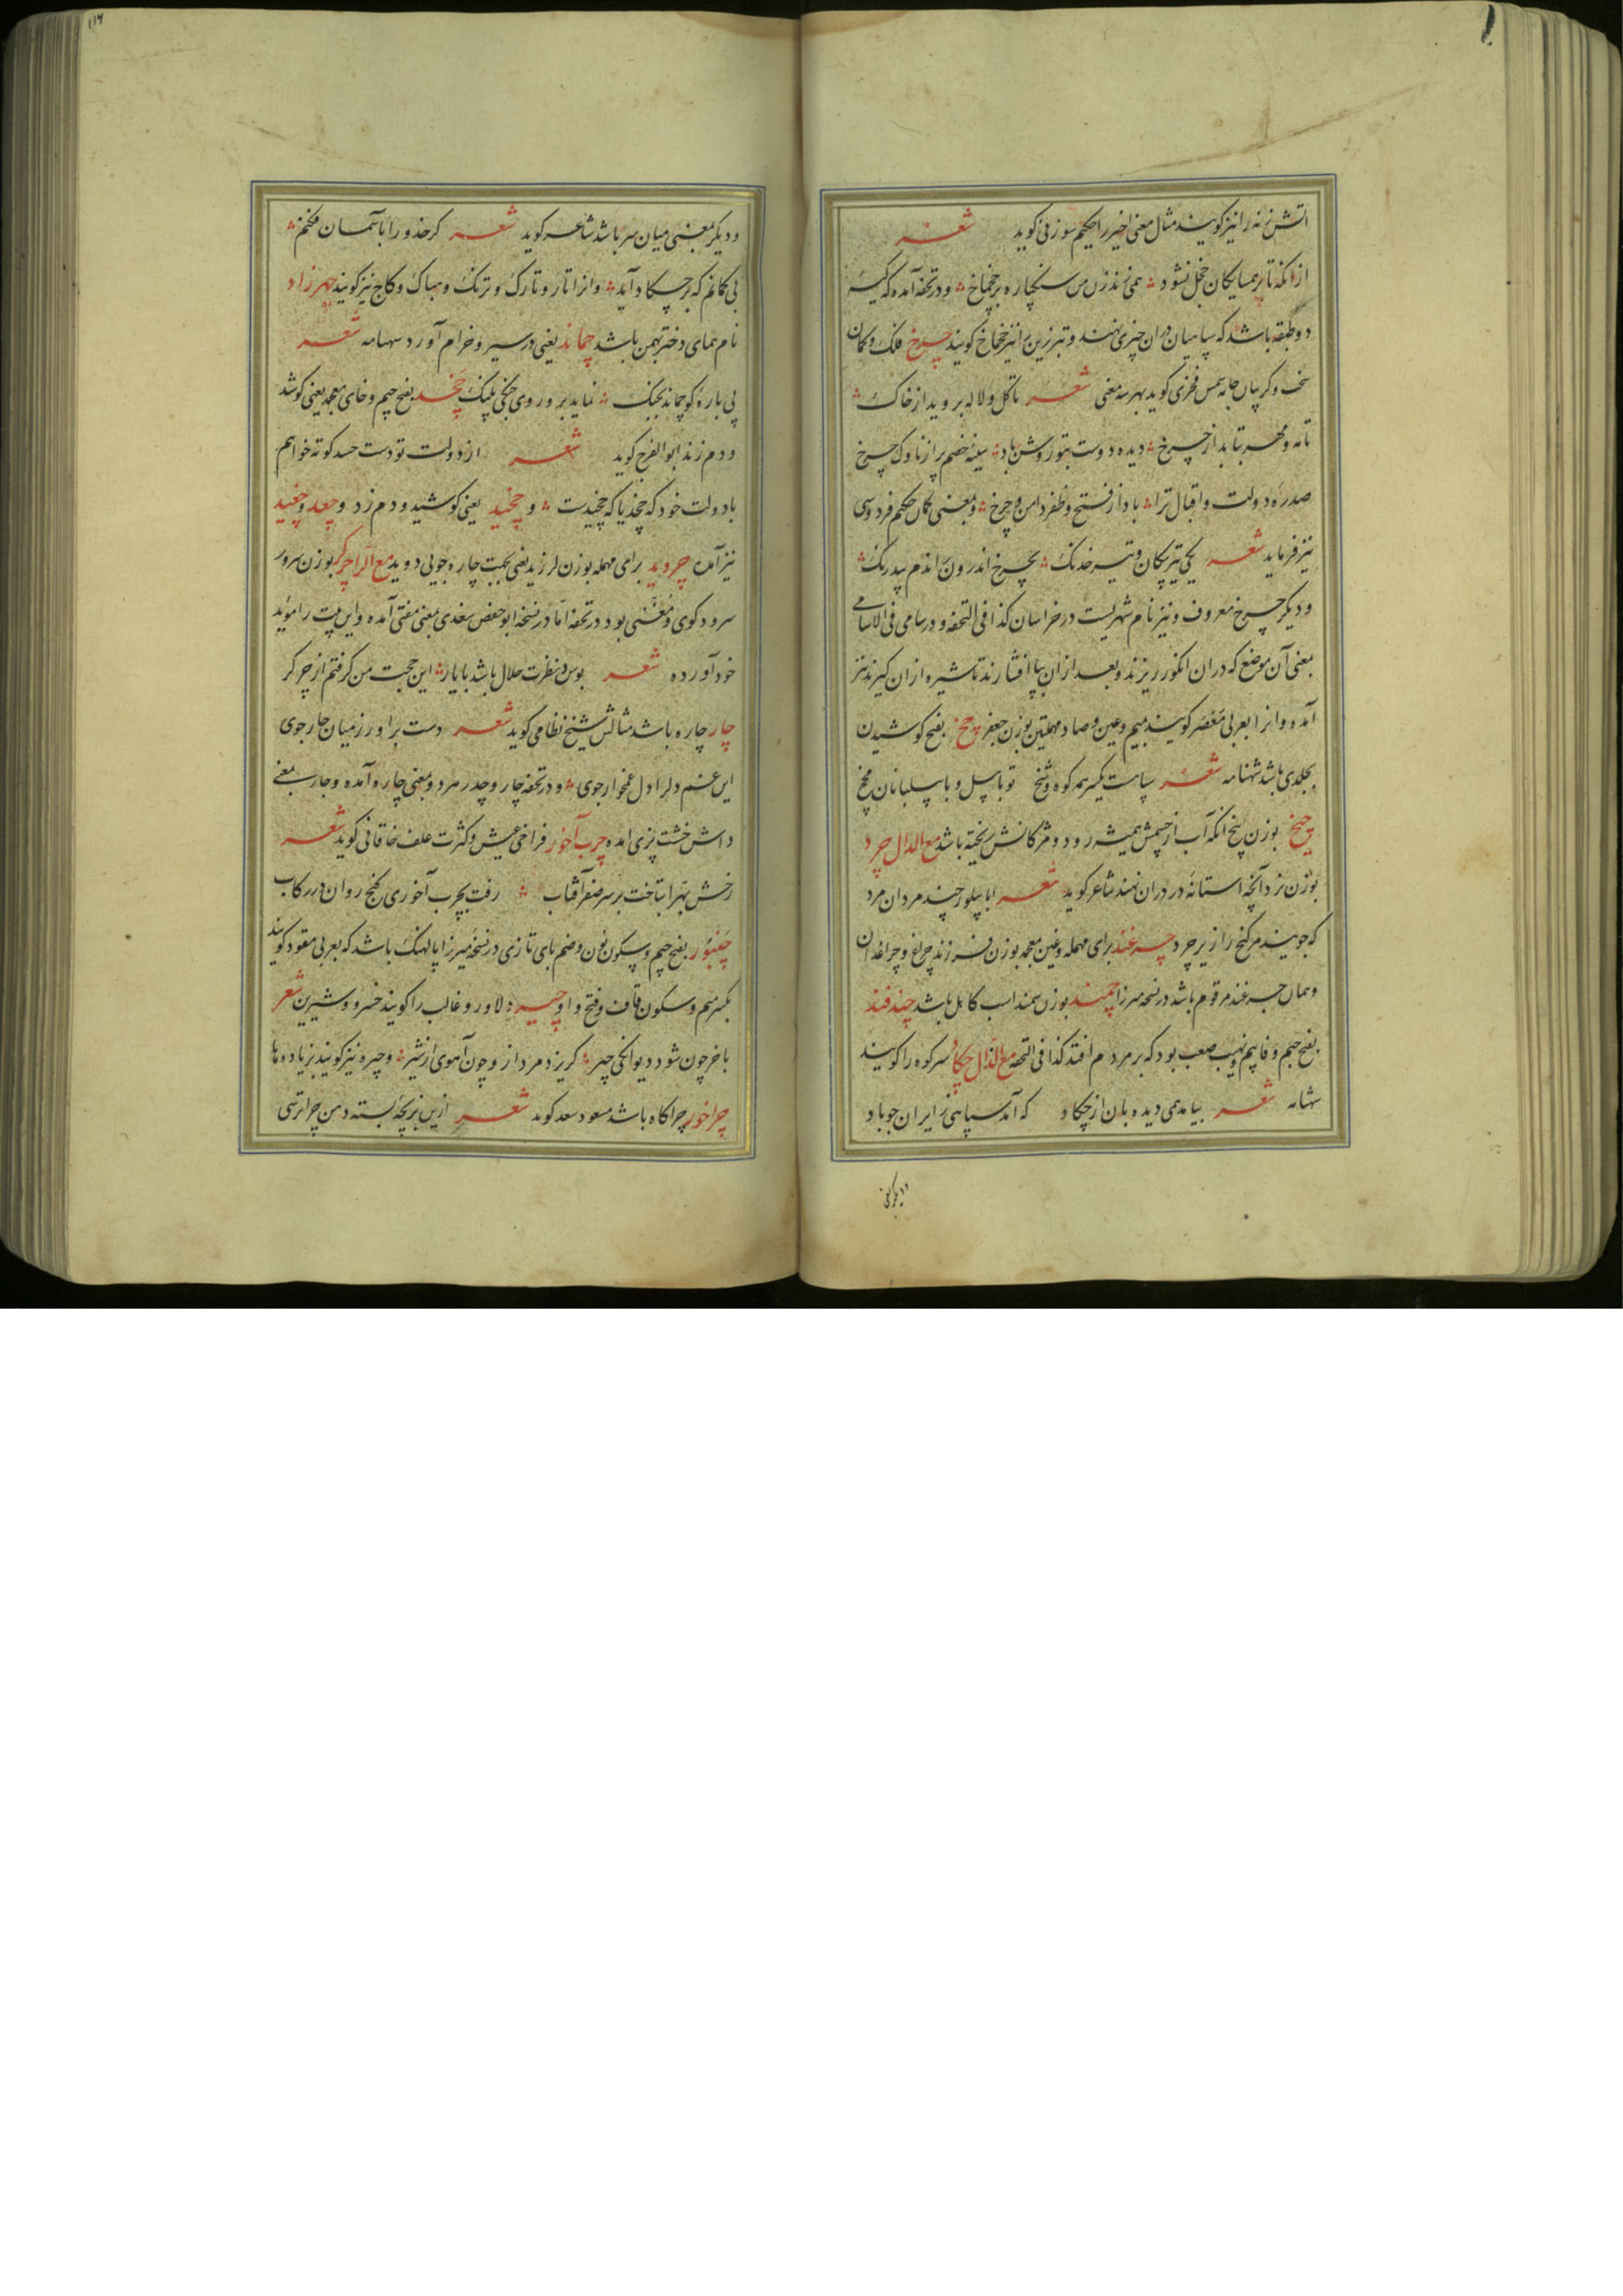 اتش زنه را نیز کویند مثال معنی اخیر را حکیم سوزنی کوید شعر
ازانکه تا بر همسایکان خجل نشود همی زند زن من سنکپاره بر چخماخ و در تحفه آمده که کیسه
دو طبقه باشد که سپاهیان دران چیزی نهند و تبرزین را نیز چخماخ کویند چرخ فلک و کمان
سخت و کریبان جامه شمس فخری کوید بهر سه معنی شعر تا کل و لاله بروید از خاک
تا مه و مهر بتابد از چرخ دیده دوست بتو روشن باد سینه خصم پر از ناوک چرخ
صدره دولت و اقبال ترا باد از فتح و ظفر دامن و چرخ و بمعنی کمان حکیم فردوسی
نیز فرماید شعر یکی تیر پیکان و تیر خدنک بچرخ اندرون راندم بیدرنک
و دیکر چرخ معروف و نیز نام شهریست در خراسان کذا فی التحفه و در سامی فی الاسامی
بمعنی آن موضع که دران انکور ریزند و بعد ازان بپا افشارند تا شیره ازان کیرند نیز
آمده و انرا بعربی معصر کویند بمیم و عین و صاد مهملتین بوزن جعفر چخ بفتح کوشیدن
بجلدی باشد شهنامه شعر سپاهست یکسر همه کوه و شخ تو با پیل و با پیلبانان مچخ
چیخ بوزن پیخ انکه آب از چشمش همیشه رود و مژکانش ریخته باشد مع الدال چرد
بوزن نرد آنچه استانه در دران نهند شاعر کوید شعر ابا پیلور چند مردان مرد
که جویند مر کنج را زیر چرد چرغند برای مهمله و غین معجمه بوزن فرزند چراغ و چراغدان
و همان جرغند مرقوم باشد در نسخه میرزا چمند بوزن سمند اسب کاهل باشد چندفند
بفتح جیم و فا بیم و نهیب صعب بود که بر مردم افتد کذا فی التحفه مع الذال چکاد سر کوه را کویند
شهنامه شعر بیامد همی دیده بان از چکاد که آمد سپاهی ز ایران جو باد
و دیکر بمعنی
و دیکر بمعنی میان سر باشد شاعر کوید شعر کر خدو را بآسمان فکنم
بی کمانم که بر چکاد آید و انرا تار و تارک و ترنک و هباک و کاج نیز کویند چهرزاد
نام همای دختر بهمن باشد چماند یعنی در سیر و خرام آورد شعر
پی باره کو چماند بجنک نماید برو روی جنکی پلنک چخد بفتح جیم و خای معجمه یعنی کوشد
و دم زند ابوالفرج کوید شعر از دولت تو دست حسد کوته خواهم
با دولت خود که چخد یا که چخیدست و چخید یعنی کوشید و دم زد و چغد و چغید
نیز آمده چروید برای مهمله بوزن لرزید یعنی بجهت چاره جویی دوید مع الرا چرکر بوزن سرور
سرود کوی و مغنی بود در تحفه اما در نسخه ابو حفص سغدی بمعنی مفتی آمده و این بیت را مؤید
خود آورده شعر بوس و نظرت حلال باشد با یار این حجت من کرفتم از چرکر
چار چاره باشد مثالش شیخ نظامی کوید شعر دست براور ز میان چارجوی
این غم دل را دل غمخوار جوی و در تحفه چار و چدر هر دو بمعنی چاره آمده و چار بمعنی
داش خشت پزی امده چرب آخور فراخی عیش و کثرت علف خاقانی کوید شعر
رخش بهرا بتاخت بر سر صفر آفتاب رفت بچرب آخوری کنج روان در رکاب
چنبور بفتح جیم و سکون نون و ضم بای تازی در نسخه میرزا پالهنک باشد که بعربی مقود کویند
بکسر میم و سکون قاف و فتح واو چیر دلاور و غالب را کویند خسرو و شیرین شعر
باخر چون شود دیوانکی چیر کریزد مرد ازو چون آهوی از شیر و چیره نیز کویند بزیاده ها
چراخور چراکاه باشد مسعود سعد کوید شعر دهن چرا ترسی